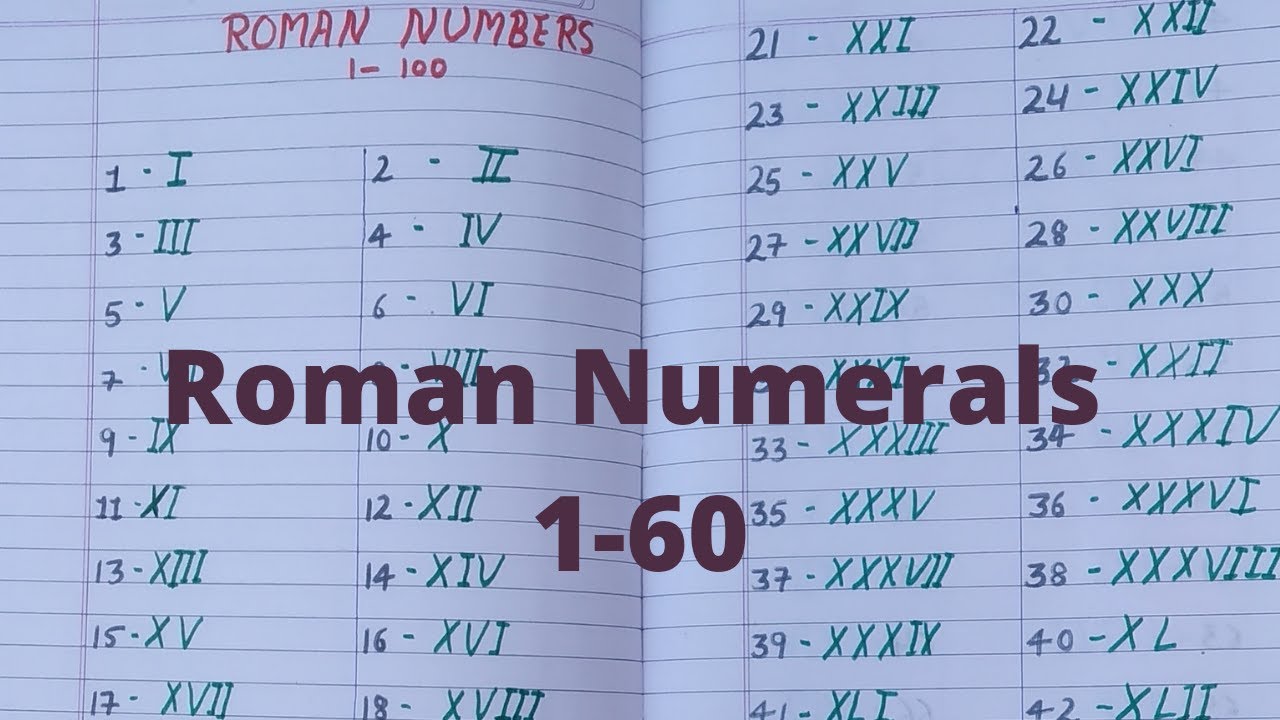 ROMAN NUMBERS
1- 100
1 - I 2 - II
3 - III 4 - IV
5 - V 6 - VI
7 - - VIII
9 - IX 10 - X
11 - XI 12 - XII
13 - XIII 14 - XIV
15 - XV 16 - XVI
17 - XVII 18 - XVIII
21 - XXI 22 - XXII
23 - XXIII 24 - XXIV
25 - XXV 26 - XXVI
27 - XXVII 28 - XXVIII
29 - XXIX 30 - XXX
XXXI 32 - XXII
33 - XXXIII 34 - XXXIV
35 - XXXV 36 - XXXVI
37 - XXXVII 38 - XXXVIII
39 - XXXIX 40 - XL
41 - XLI 42 - XLII
Roman Numerals
1-60